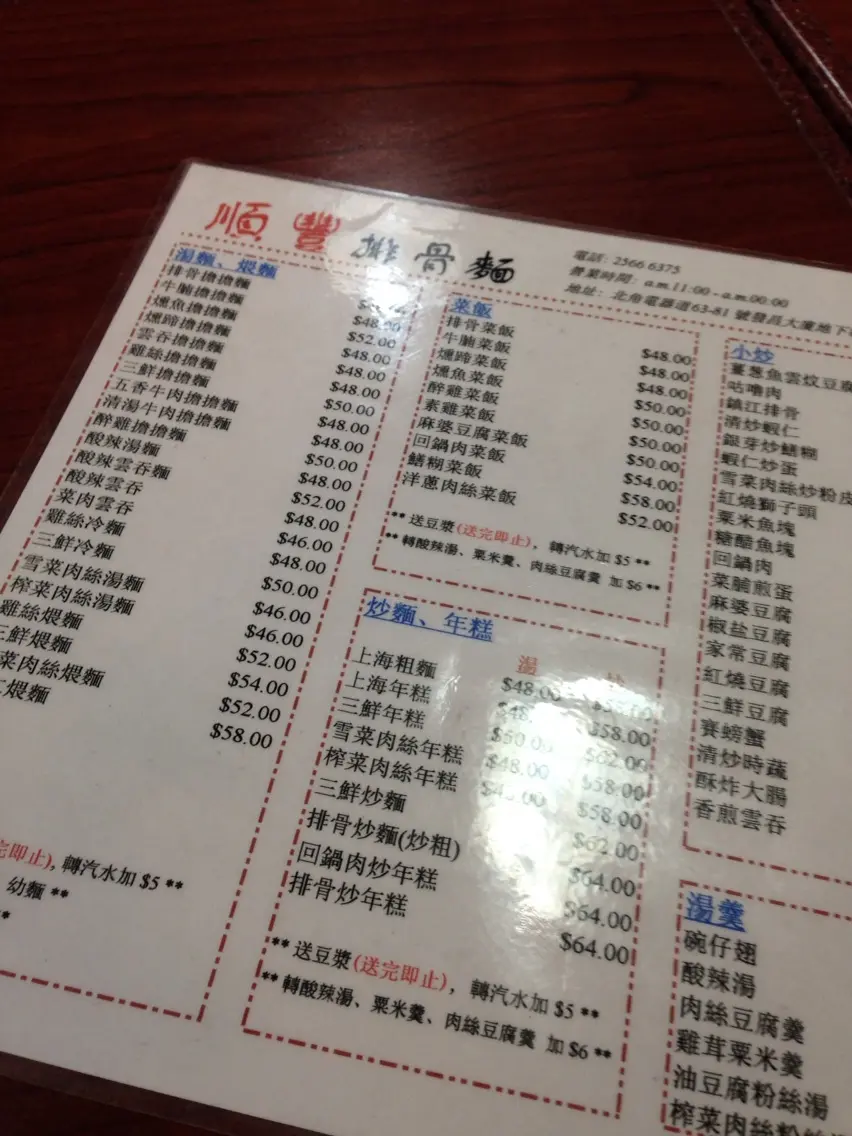 順豐排骨麵
電話：2566 6375
營業時間：a.m.11:00 - a.m.00:00
地址：北角電器道63-81 號發昌大廈地下
湯麵、煨麵
排骨擔擔麵
牛腩擔擔麵 $48.00
燻魚擔擔麵 $52.00
燻蹄擔擔麵 $48.00
雲吞擔擔麵 $48.00
雞絲擔擔麵 $48.00
三鮮擔擔麵 $50.00
五香牛肉擔擔麵 $48.00
清湯牛肉擔擔麵 $48.00
醉雞擔擔麵 $50.00
酸辣湯麵 $48.00
酸辣雲吞麵 $52.00
酸辣雲吞 $48.00
菜肉雲吞 $46.00
雞絲冷麵 $48.00
三鮮冷麵 $50.00
雪菜肉絲湯麵 $46.00
榨菜肉絲湯麵 $46.00
雞絲煨麵 $52.00
鮮煨麵 $54.00
菜肉絲煨麵 $52.00
煨麵 $58.00
完即止)，轉汽水加 $5 **
幼麵 **
菜飯
排骨菜飯 $48.00
牛腩菜飯 $48.00
燻蹄菜飯 $48.00
燻魚菜飯 $50.00
醉雞菜飯 $50.00
素雞菜飯 $50.00
麻婆豆腐菜飯 $50.00
回鍋肉菜飯 $54.00
鱔糊菜飯 $58.00
洋蔥肉絲菜飯 $52.00
** 送豆漿(送完即止)，轉汽水加 $5 **
** 轉酸辣湯、粟米羹、肉絲豆腐羹 加 $6 **
炒麵、年糕
湯 炒
上海粗麵 $48.00
上海年糕 $58.00
三鮮年糕 $50.00 $62.00
雪菜肉絲年糕 $48.00 $58.00
榨菜肉絲年糕 $58.00
三鮮炒麵 $62.00
排骨炒麵(炒粗) $64.00
回鍋肉炒年糕 $64.00
排骨炒年糕 $64.00
** 送豆漿(送完即止)，轉汽水加 $5 **
** 轉酸辣湯、粟米羹、肉絲豆腐羹 加 $6 **
小炒
薑蔥魚雲炆豆腐
咕嚕肉
鎮江排骨
清炒蝦仁
銀芽炒鱔糊
蝦仁炒蛋
雪菜肉絲炒粉皮
紅燒獅子頭
粟米魚塊
糖醋魚塊
回鍋肉
菜脯煎蛋
麻婆豆腐
椒鹽豆腐
家常豆腐
紅燒豆腐
三鮮豆腐
賽螃蟹
清炒時蔬
酥炸大腸
香煎雲吞
湯羹
碗仔翅
酸辣湯
肉絲豆腐羹
雞茸粟米羹
油豆腐粉絲湯
榨菜肉絲粉絲